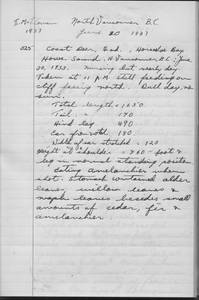 North Vancouver B.C.
1937 June 20 1937
Coast Deer, Horseshoe Bay
Howe Sound, N. Vancouver B.C. June
20, 1937. Sunny but nearly day
Taken at 11 P.M. still feeding on
cliff facing north. Dull day, no
sun.
Total length = 1650
Tail = 170
Hind leg 490
Ear from notch 190
Width of ear stretched = 120
Height at shoulder = 860 - foot &
leg in normal standing position
Eating amelanchier when
shot. Stomach contained alder
leaves, willow leaves &
maple leaves besides small
amounts of cedar, fir &
amelanchier